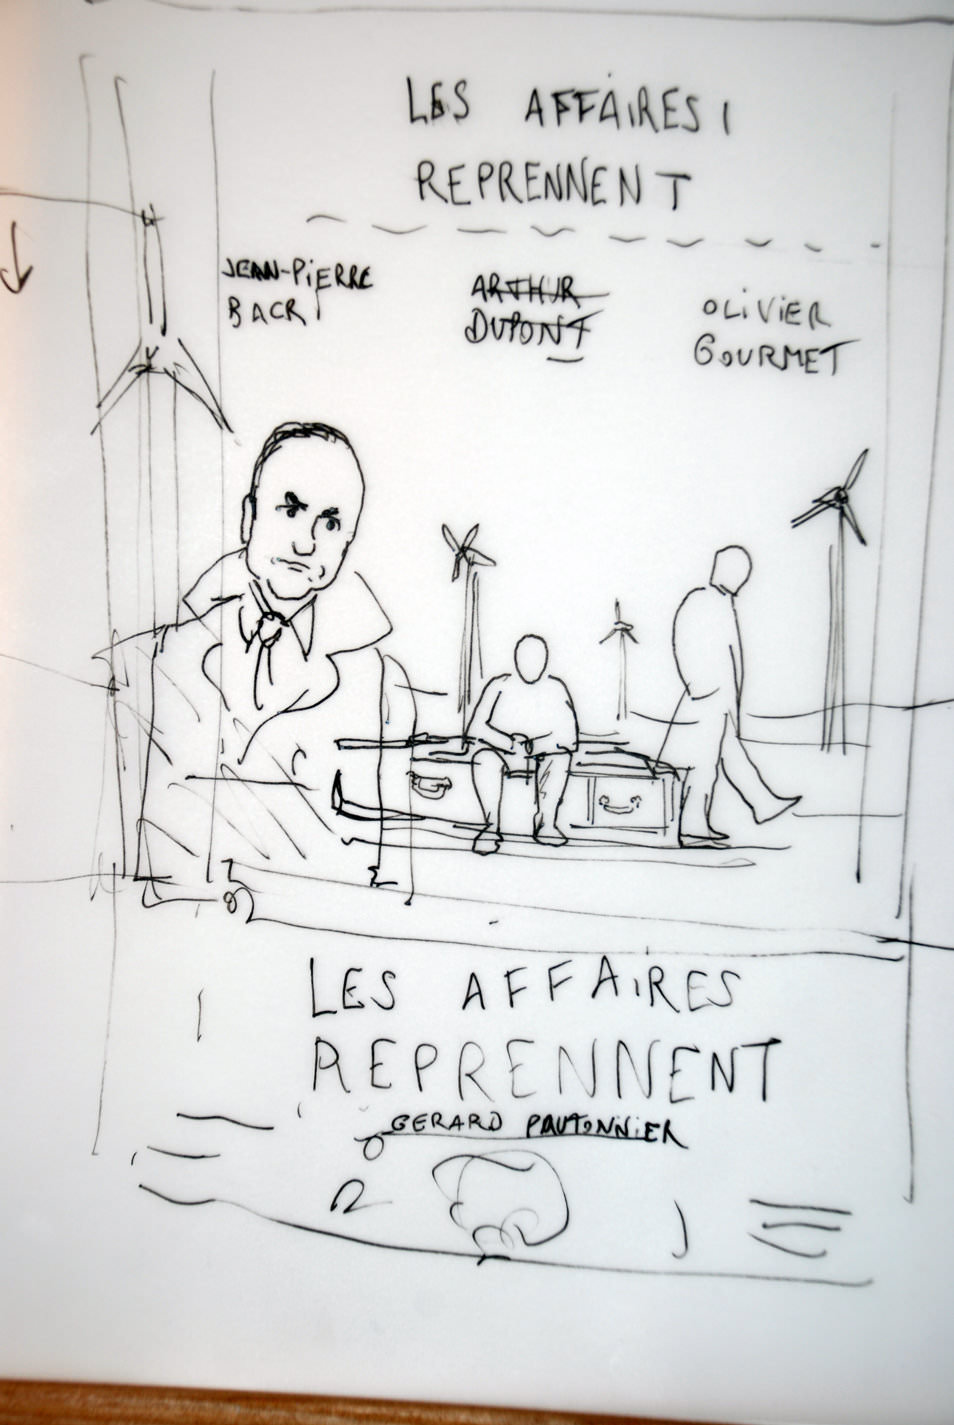 LES AFFAIRES
REPRENNENT
JEAN-PiERRE
BACRI
ARTHUR
DUPONT
OLiViER
GOURMET
LES AFFAiRES
REPRENNENT
GERARD PAUTONNiER